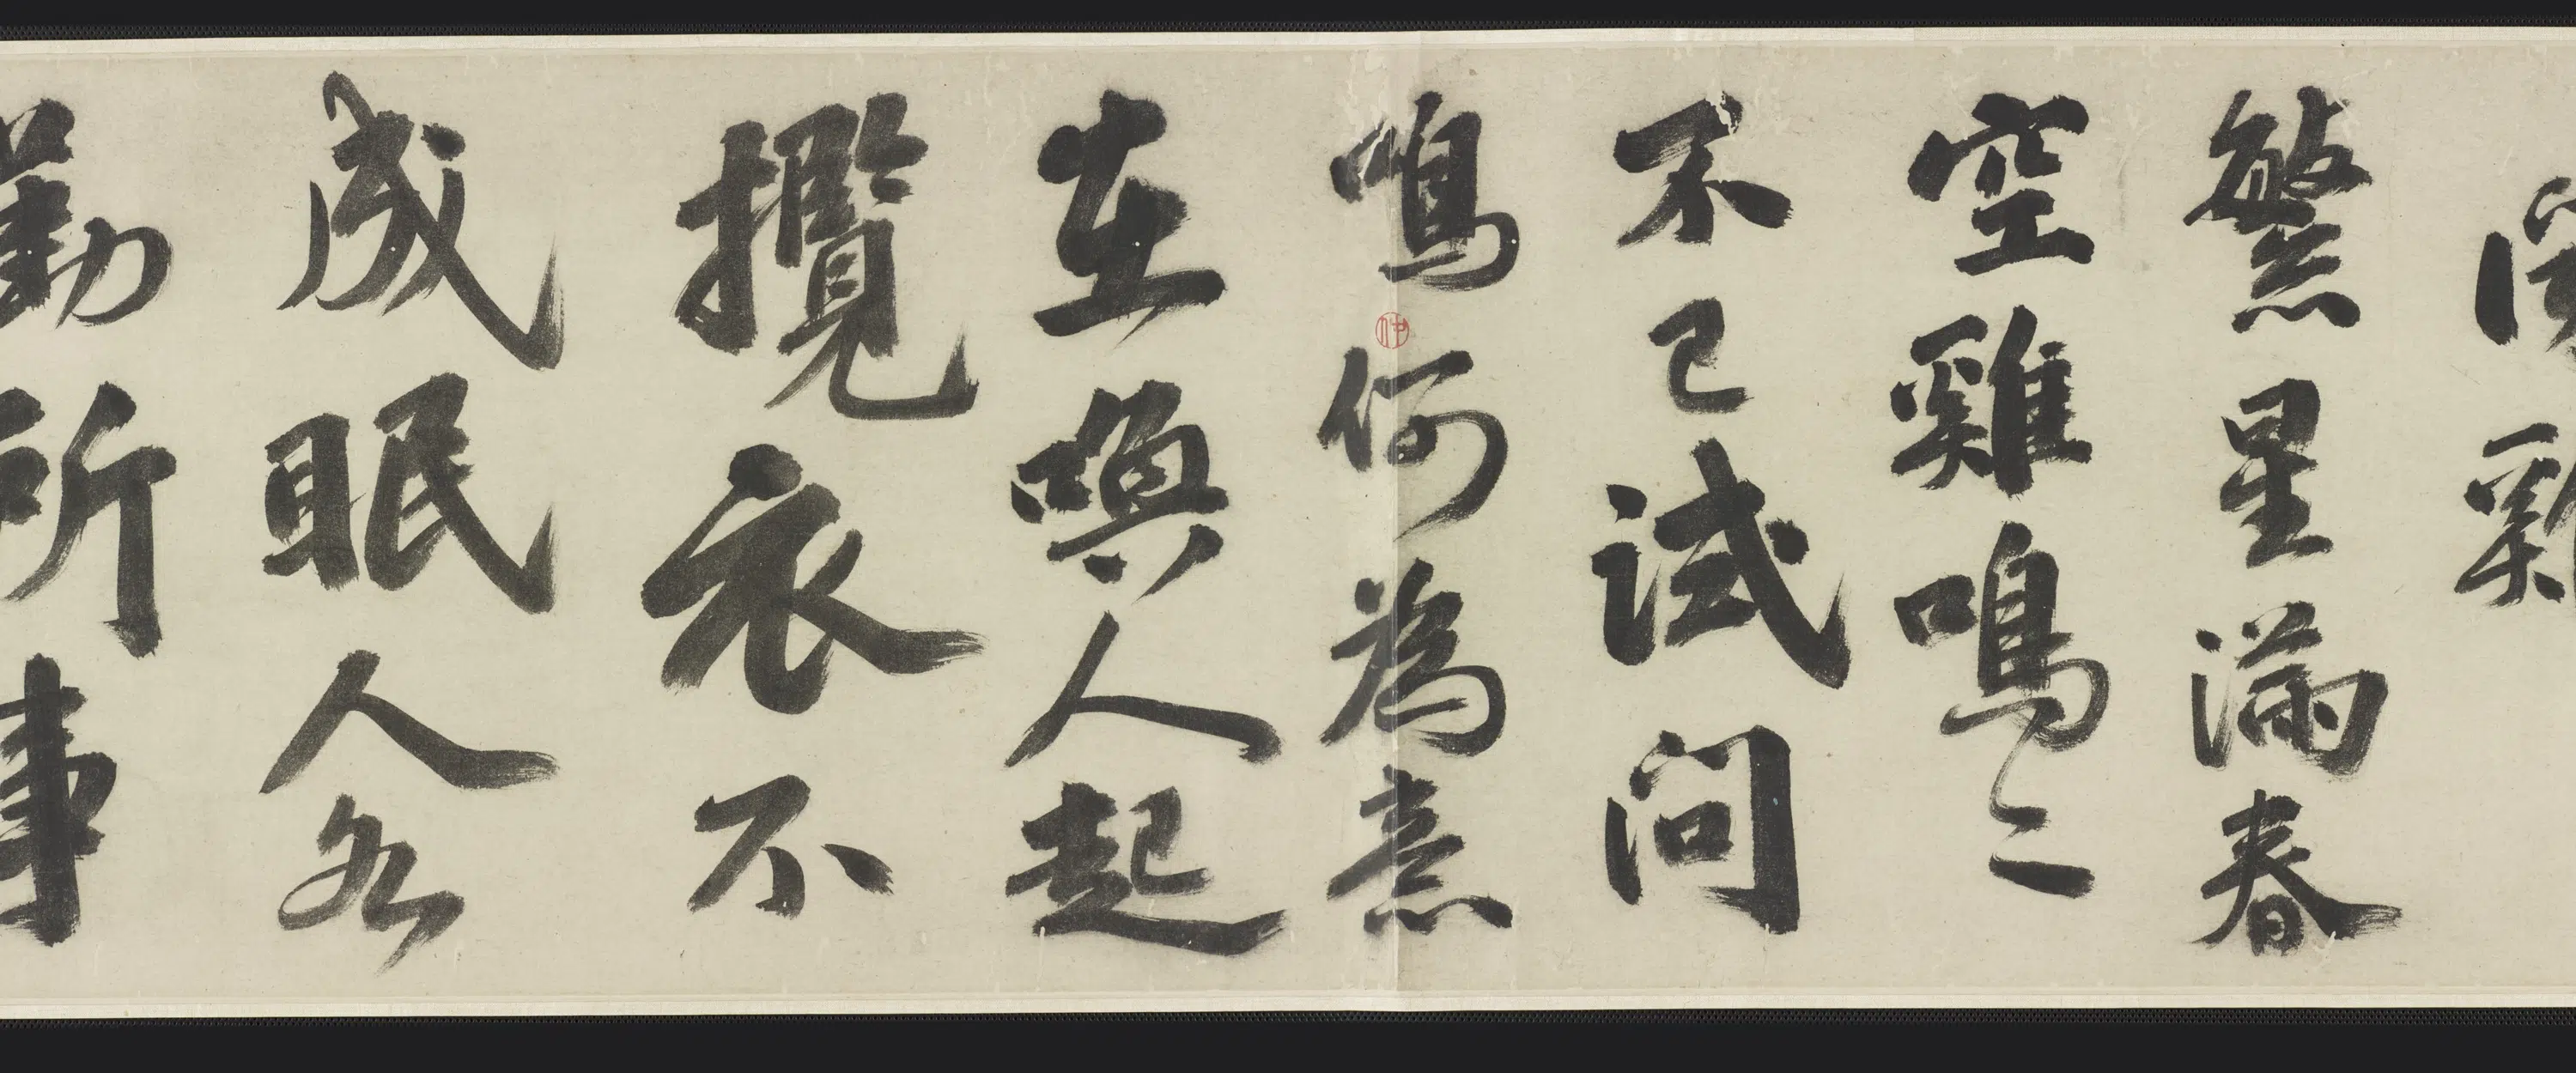 繁星滿春
空雞鳴二
不已試問
鳴何為意
在喚人起
攬衣不
成眠人各
勤所事